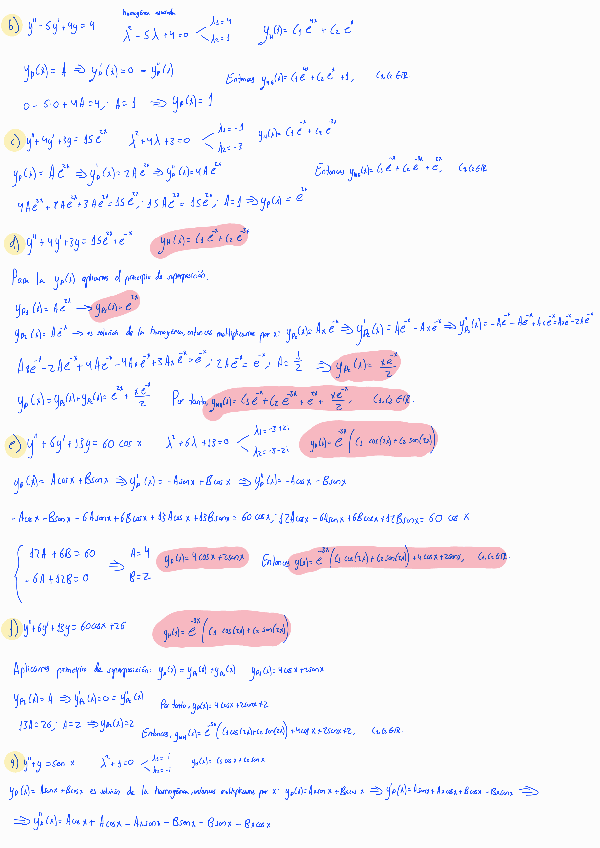 homogénea asociada
b) y'' - 5y' + 4y = 4 λ² - 5λ + 4 = 0 λ1 = 4 λ2 = 1 yH(x) = C1 e^4x + C2 e^x
yp(x) = A ⇒ yp'(x) = 0 = yp''(x)
Entonces yNH(x) = C1 e^4x + C2 e^x + 1, C1, C2 ∈ ℝ
0 - 5·0 + 4A = 4; A = 1 ⇒ yp(x) = 1
c) y'' + 4y' + 3y = 15e^2x λ² + 4λ + 3 = 0 λ1 = -1 λ2 = -3 yH(x) = C1 e^-x + C2 e^-3x
yp(x) = Ae^2x ⇒ yp'(x) = 2Ae^2x ⇒ yp''(x) = 4Ae^2x
Entonces yNH(x) = C1 e^-x + C2 e^-3x + e^2x, C1, C2 ∈ ℝ
4Ae^2x + 8Ae^2x + 3Ae^2x = 15e^2x; 15Ae^2x = 15e^2x; A = 1 ⇒ yp(x) = e^2x
d) y'' + 4y' + 3y = 15e^2x + e^-x yH(x) = C1 e^-x + C2 e^-3x
Para la yp(x) aplicamos el principio de superposición:
yp1(x) = Ae^2x → yp1(x) = e^2x
yp2(x) = Ae^-x → es solución de la homogénea, entonces multiplicamos por x: yp2(x) = Axe^-x ⇒ yp2'(x) = Ae^-x - Axe^-x ⇒ yp2''(x) = -Ae^-x - Ae^-x + Axe^-x = Axe^-x - 2Ae^-x
Axe^-x - 2Ae^-x + 4Ae^-x - 4Axe^-x + 3Axe^-x = e^-x; 2Ae^-x = e^-x; A = 1/2 ⇒ yp2(x) = xe^-x/2
yp(x) = yp1(x) + yp2(x) = e^2x + xe^-x/2 Por tanto, yNH(x) = C1 e^-x + C2 e^-3x + e^2x + xe^-x/2, C1, C2 ∈ ℝ.
e) y'' + 6y' + 13y = 60 cos x λ² + 6λ + 13 = 0 λ1 = -3+2i λ2 = -3-2i yH(x) = e^-3x (C1 cos(2x) + C2 sen(2x))
yp(x) = A cos x + B sen x ⇒ yp'(x) = -A sen x + B cos x ⇒ yp''(x) = -A cos x - B sen x
-A cos x - B sen x - 6A sen x + 6B cos x + 13A cos x + 13B sen x = 60 cos x; 12A cos x - 6A sen x + 6B cos x + 12B sen x = 60 cos x
12A + 6B = 60 ⇒ A = 4 yp(x) = 4 cos x + 2 sen x Entonces y(x) = e^-3x (C1 cos(2x) + C2 sen(2x)) + 4 cos x + 2 sen x, C1, C2 ∈ ℝ.
-6A + 12B = 0 B = 2
f) y'' + 6y' + 13y = 60 cos x + 26 yH(x) = e^-3x (C1 cos(2x) + C2 sen(2x))
Aplicamos principio de superposición: yp(x) = yp1(x) + yp2(x) yp1(x) = 4 cos x + 2 sen x
yp2(x) = A ⇒ yp2'(x) = 0 = yp2''(x) Por tanto, yp(x) = 4 cos x + 2 sen x + 2
13A = 26; A = 2 ⇒ yp2(x) = 2 Entonces, yNH(x) = e^-3x (C1 cos(2x) + C2 sen(2x)) + 4 cos x + 2 sen x + 2, C1, C2 ∈ ℝ.
g) y'' + y = sen x λ² + 1 = 0 λ1 = i λ2 = -i yH(x) = C1 cos x + C2 sen x
yp(x) = A sen x + B cos x es solución de la homogénea, entonces multiplicamos por x: yp(x) = Ax sen x + Bx cos x ⇒ yp'(x) = A sen x + Ax cos x + B cos x - Bx sen x ⇒
⇒ yp''(x) = A cos x + A cos x - Ax sen x - B sen x - B sen x - Bx cos x